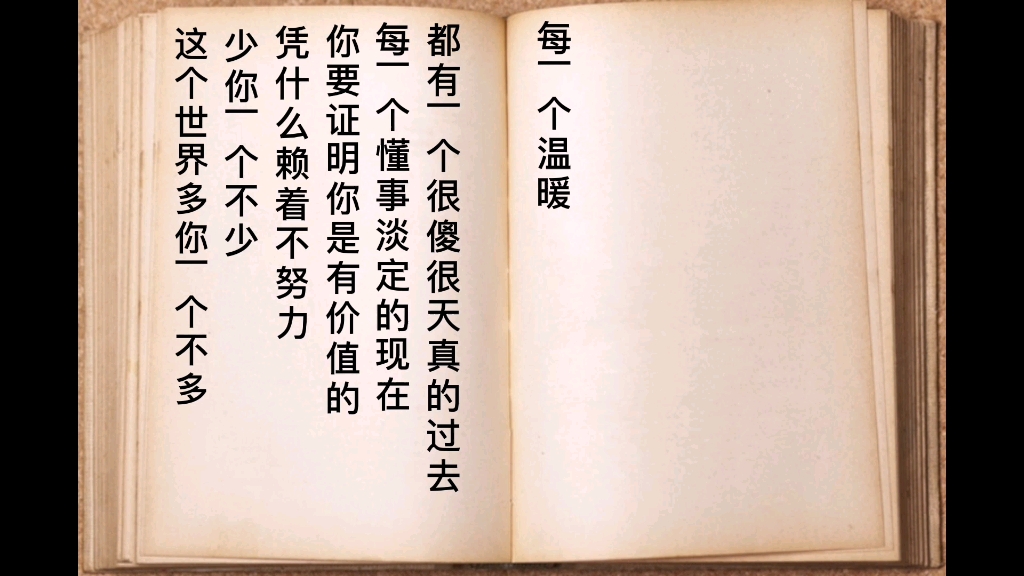 这个世界多你一个不多
少你一个不少
凭什么赖着不努力
你要证明你是有价值的
每一个懂事淡定的现在
都有一个很傻很天真的过去
每一个温暖